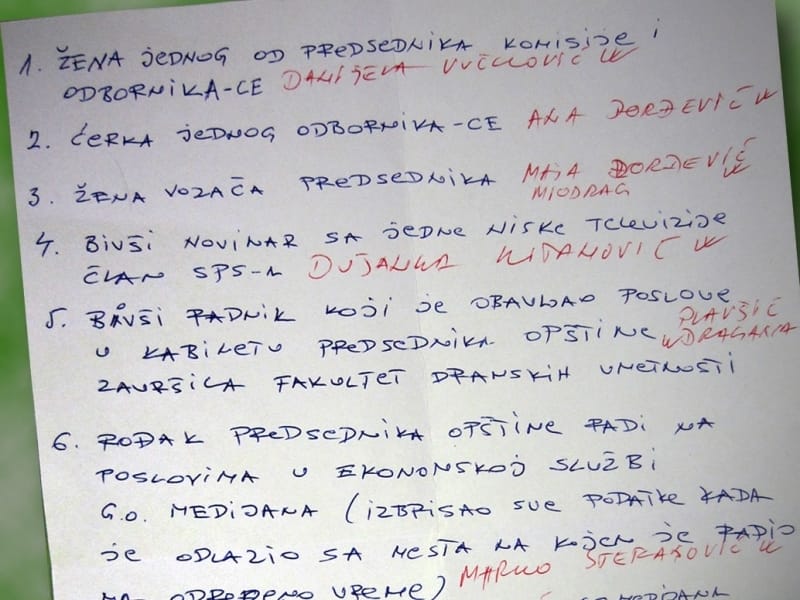 1. ŽENA JEDNOG OD PREDSEDNIKA KOMISIJE I
ODBORNIKA-CE DANIJELA VUČKOVIĆ
2. ĆERKA JEDNOG ODBORNIKA-CE ANA ĐORĐEVIĆ
3. ŽENA VOZAČA PREDSEDNIKA MAJA ĐORĐEVIĆ
MIODRAG
4. BIVŠI NOVINAR SA JEDNE NISKE TELEVIZIJE
ČLAN SPS-A DUŠANKA
5. BIVŠI RADNIK KOJI JE OBAVLJAO POSLOVE
U KABINETU PREDSEDNIKA OPŠTINE PLAVŠIĆ
DRAGANA
ZAVRŠILA FAKULTET DRAMSKIH UMETNOSTI
6. ROĐAK PREDSEDNIKA OPŠTINE RADI NA
POSLOVIMA U EKONOMSKOJ SLUŽBI
G.O. MEDIJANA (IZBRISAO SVE PODATKE KADA
JE ODLAZIO SA MESTA NA KOJEM JE RADIO
NA ODREĐENO VREME) MARKO
MEDIJANA